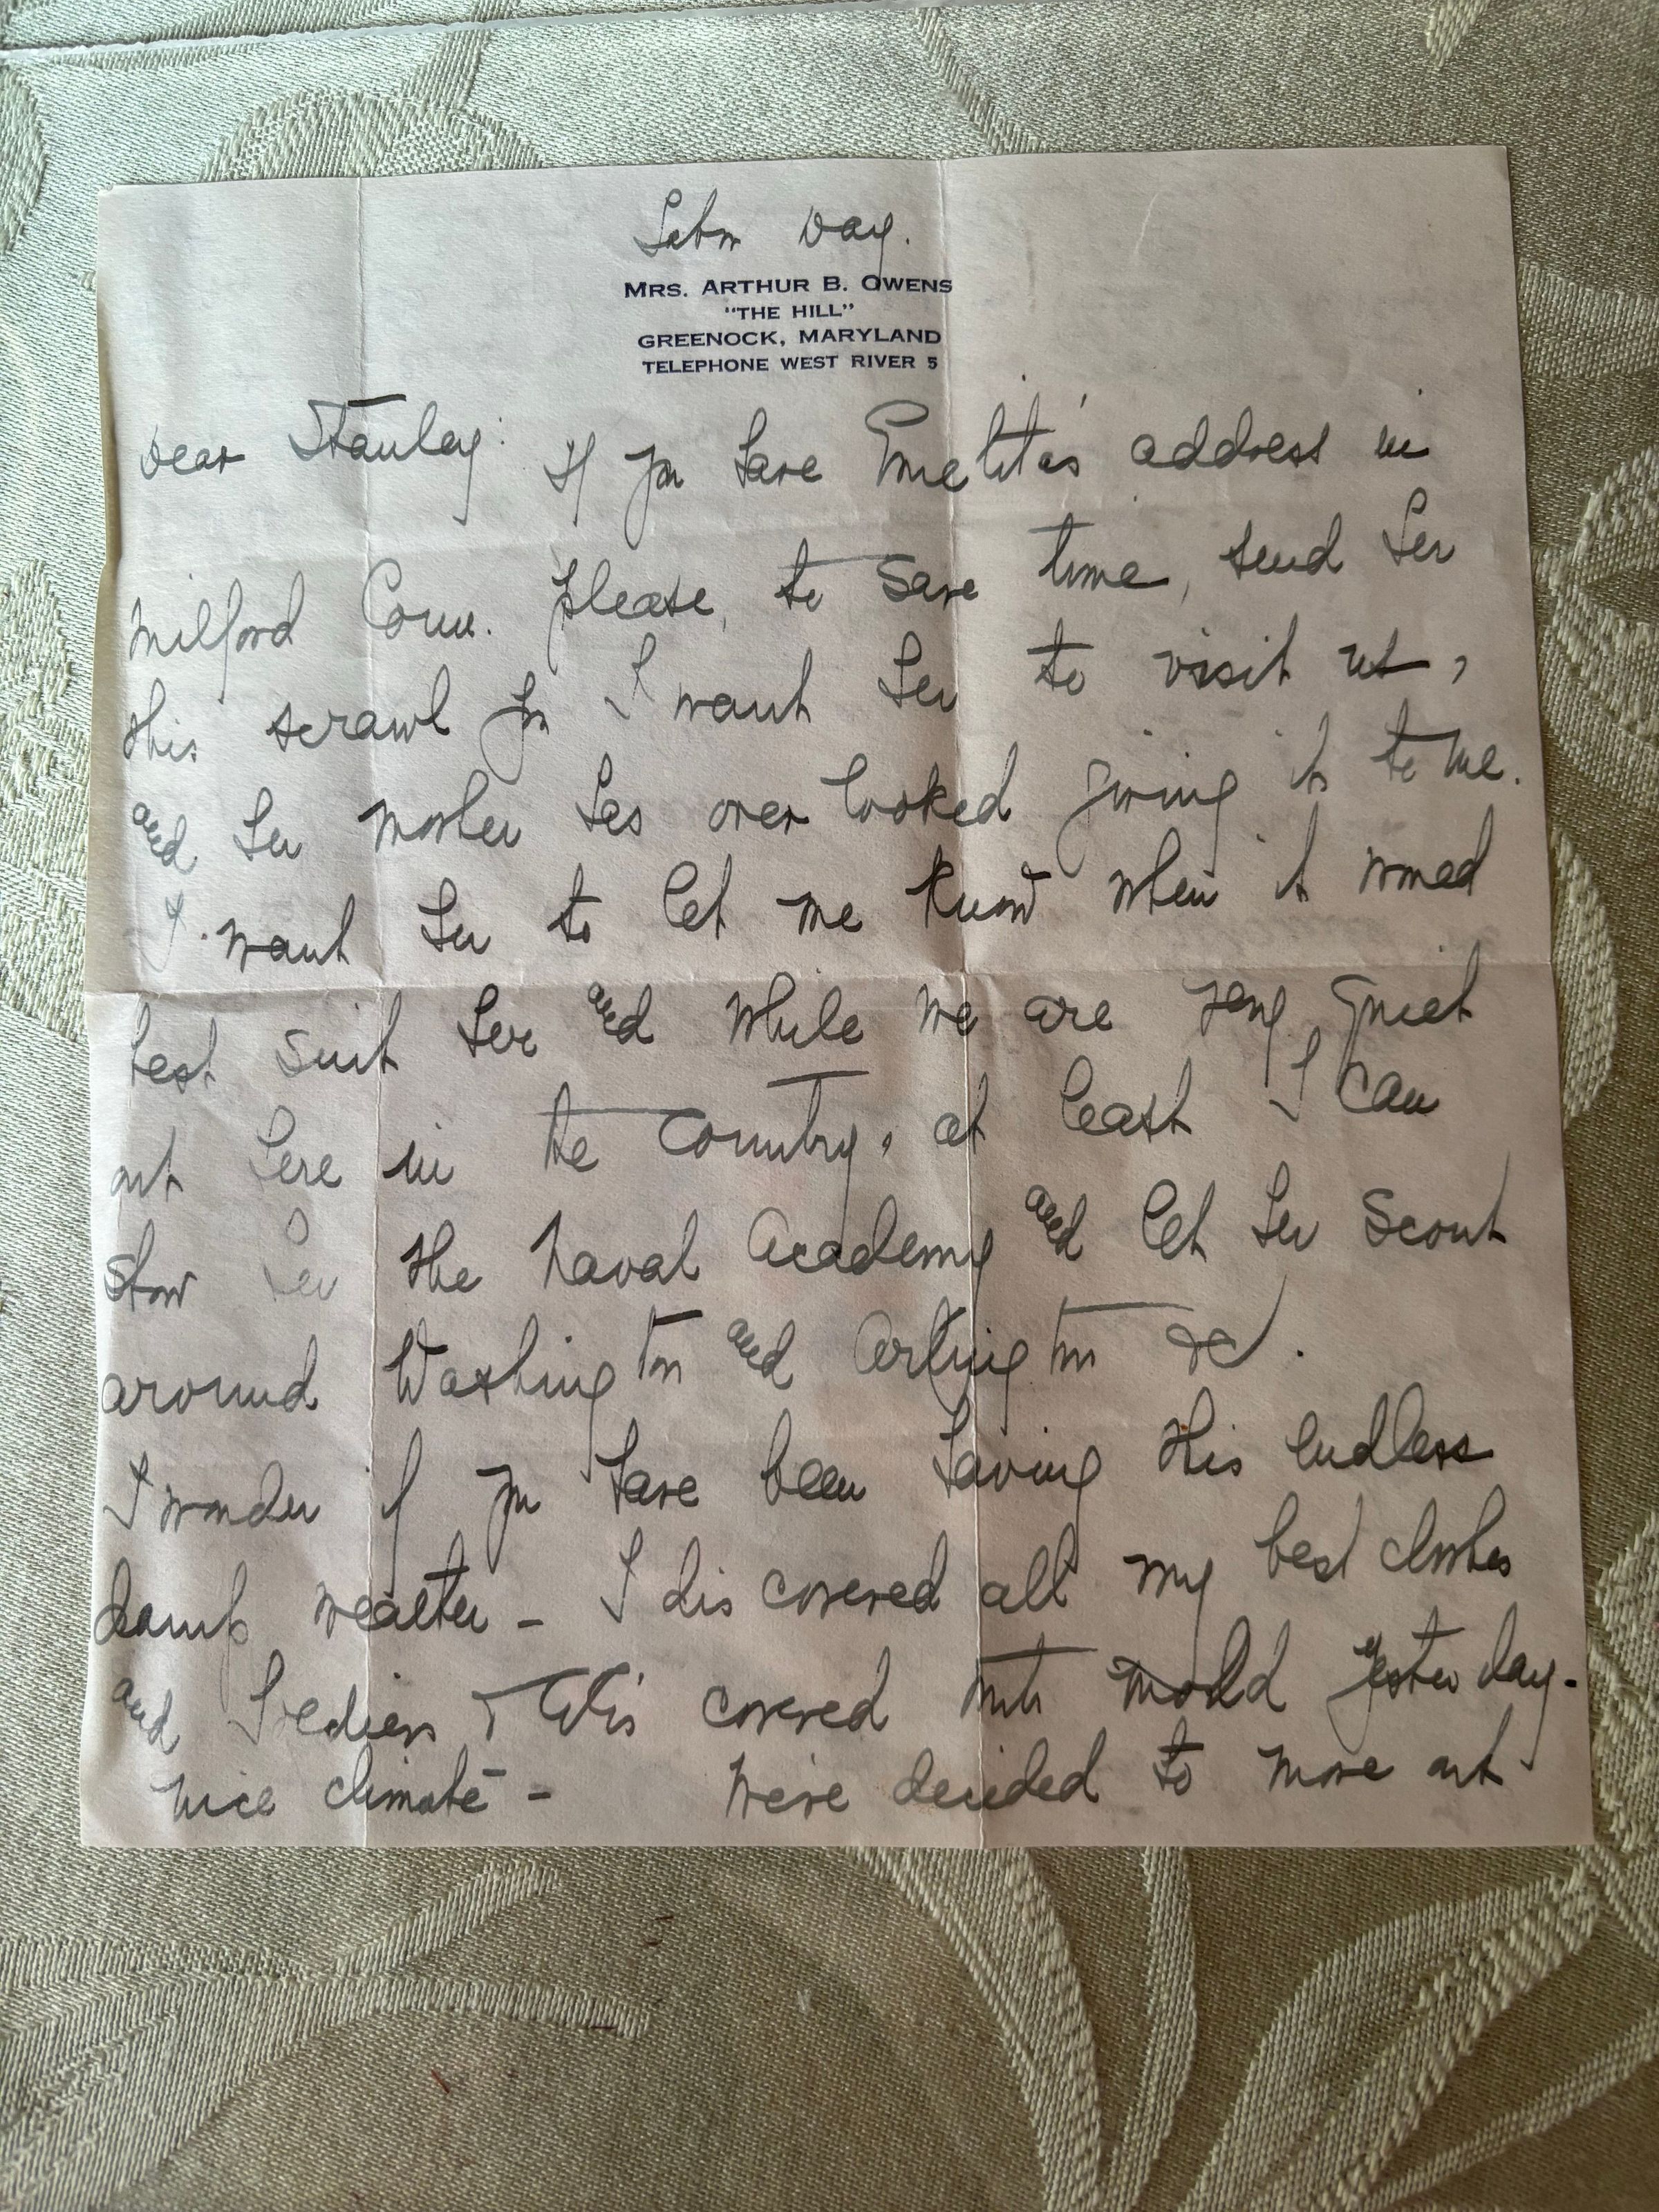 Labor Day.
MRS. ARTHUR B. OWENS
"THE HILL"
GREENOCK, MARYLAND
TELEPHONE WEST RIVER 5
Dear Stanley: If you have Emelita's address in
Milford Conn. Please, to save time, send her
this scrawl for I want her to visit us,
and her mother has over looked giving it to me.
I want her to let me know when it would
best suit her and while we are very quiet
out here in the country, at least I can
show her the Naval Academy and let her scout
around Washington and Arlington &c.
I wonder if you have been having this endless
damp weather - I discovered all my best clothes
and covered with mold yesterday -
Nice climate - We've decided to move out